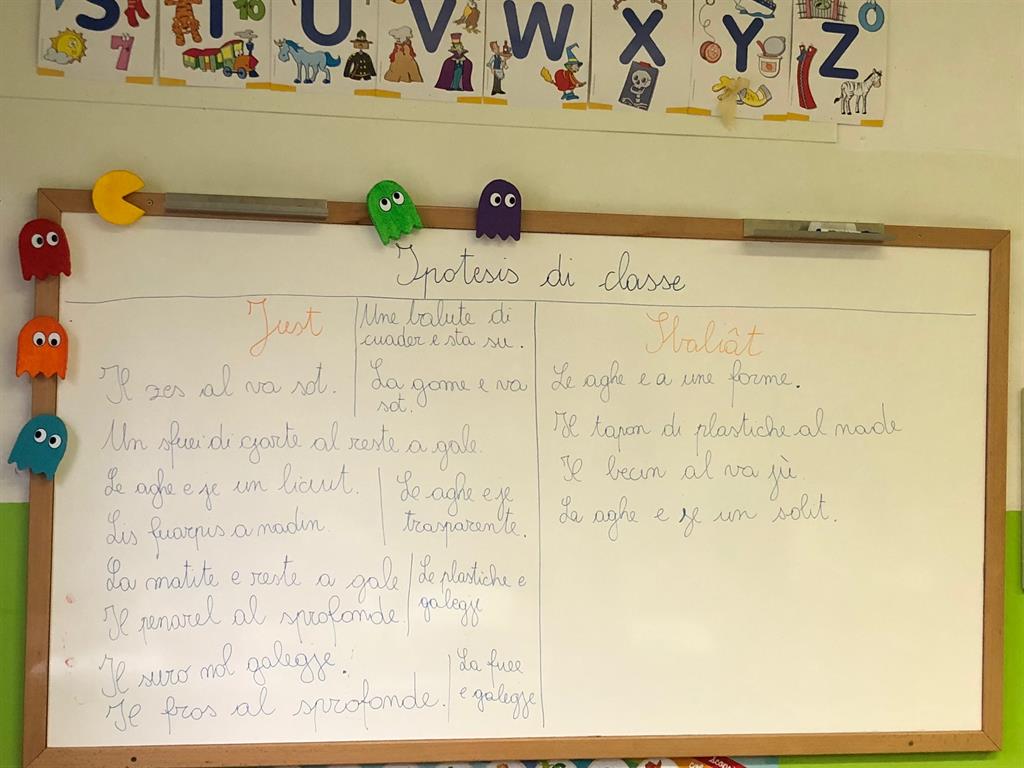 S T U V W X Y Z
Ipotesis di classe
Just
Une balute di
cuader e sta su.
Il zes al va sot.
La gome e va
sot.
Un sfuei di cjarte al reste a gale.
Le aghe e je un licuit.
Le aghe e je
trasparente.
Lis fuarpis a nadin.
La matite e reste a gale
Le plastiche e
galegje
Il penarel al sprofonde.
Il suro nol galegje.
La fuee
e galegje
Il fros al sprofonde.
Sbaliât
Le aghe e a une forme.
Il tapon di plastiche al nade
Il becin al va jù.
La aghe e je un solit.